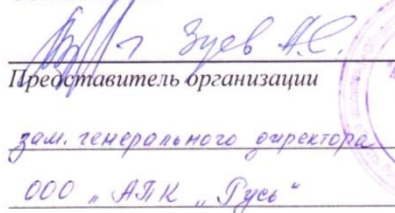 Зуев А.С.
Представитель организации
зам. генерального директора
ООО „АПК „Русь“